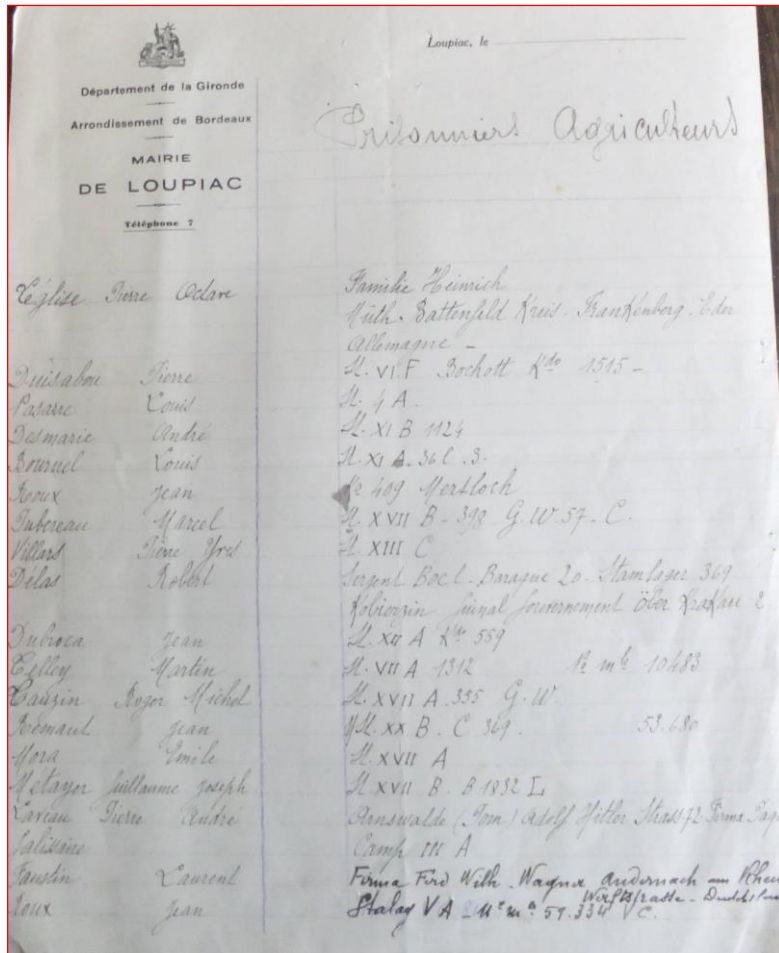 Loupiac, le
Département de la Gironde
Arrondissement de Bordeaux
MAIRIE
DE LOUPIAC
Téléphone 7
Prisonniers Agriculteurs
Léglise Pierre Octave Familie Heinrich
Müth. Battenfeld Kreis. Frankenberg. Eder
Allemagne -
Pierre St. VI.F Bocholt Kdo 1515 -
Pasarre Louis St. 4 A.
Desmarie André St. XI B 1124
Louis St. XI A. 36 l. 3.
Roux Jean No 409 Mertloch
Tubereau Marcel St. XVII B - 398 G.W. 57 - C.
Villars Pierre Yves St. XIII C
Délas Robert Sergent Boc l. Baraque 20 - Stamlager 369
Kobierzin Öber Krakau 2
Dubroca Jean St. XII A Kdo 559
Martin St. VII A 1312 No mle 10483
Cauzin Roger Michel St. XVII A. 355 G.W.
Jean St. XX B. C. 369. 53.680
Mora Emile St. XVII A
Metayer Guillaume Joseph St. XVII B. B 1832 L
Laveau Pierre André Arnswalde (Pom) Adolf Hitler Strass 72. Firma
Camp III A
Faustin Laurent Firma Ferd Wilh. Wagner Andernach am Rhein
Werftstrasse -
Roux Jean Stalag V A - No mle 59.334 V C.